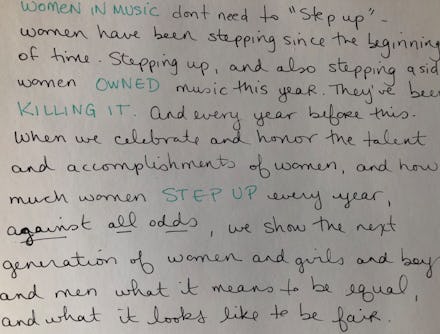 WOMEN IN MUSIC don't need to "Step up" -
women have been stepping since the beginning
of time. Stepping up, and also stepping asid
women OWNED music this year. They've bee
KILLING IT. And every year before this.
When we celebrate and honor the talent
and accomplishments of women, and how
much women STEP UP every year,
against all odds, we show the next
generation of women and girls and boy
and men what it means to be equal,
and what it looks like to be fair.